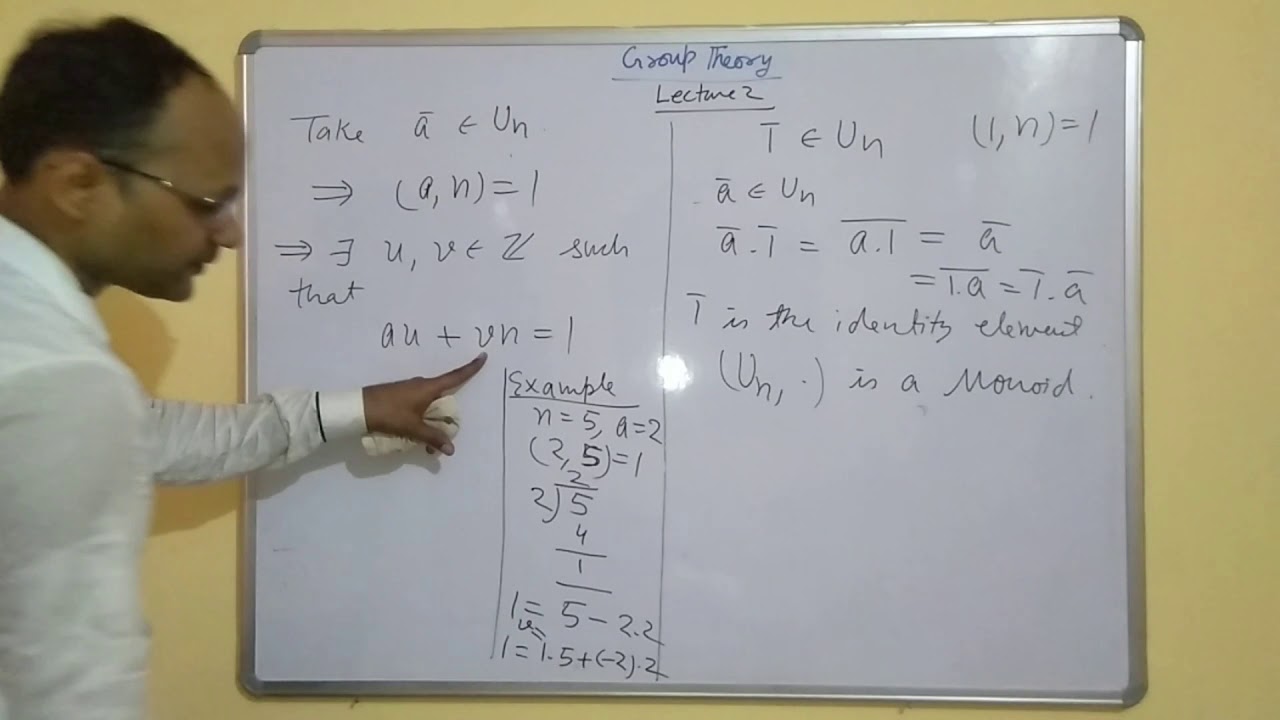 Group Theory
Lecture 2
Take ā ∈ Un
⇒ (a, n) = 1
⇒ ∃ u, v ∈ ℤ such
that
au + vn = 1
Example
n = 5, a = 2
(2, 5) = 1
2
2)5
4
1
1 = 5 - 2.2
1 = 1.5 + (-2).2
1̄ ∈ Un (1, n) = 1
ā ∈ Un
ā . 1̄ = \overline{a.1} = ā
= \overline{1.a} = 1̄ . ā
1̄ is the identity element
(Un, .) is a Monoid.